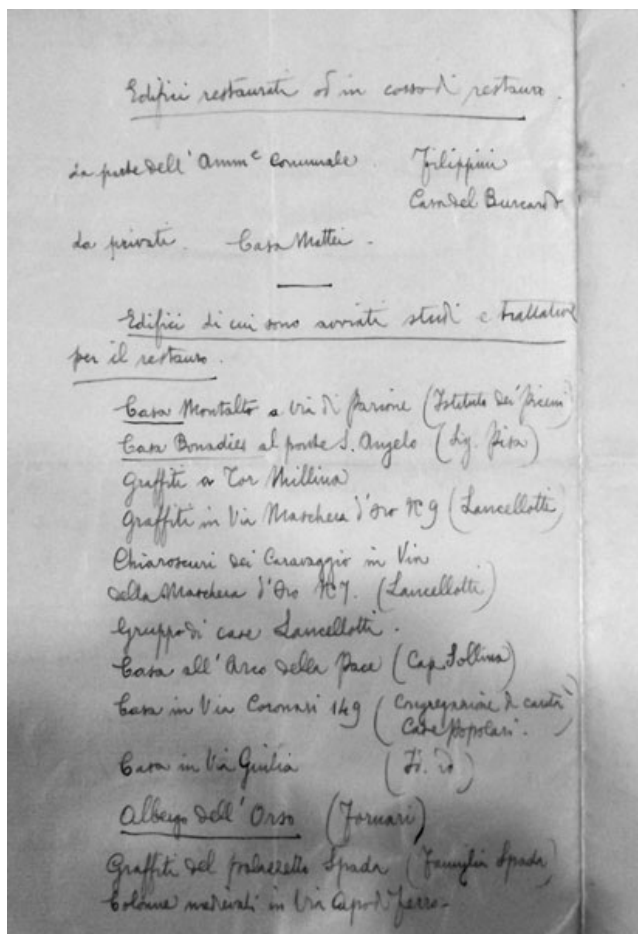 Edifici restaurati od in corso di restauro.
da parte dell' Amm.e Comunale. Filippini
Casa del Burcardo
da privati. Casa Mattei.
Edifici di cui sono avviati studi e trattative
per il restauro.
Casa Montalto a Via di Parione (Istituto dei Piceni)
Casa Bonadies al ponte S. Angelo (Sig. Pisa)
Graffiti a Tor Millina
Graffiti in Via Maschera d'Oro N. 9 (Lancellotti)
Chiaroscuri del Caravaggio in Via
della Maschera d'Oro N. 7. (Lancellotti)
Gruppo di case Lancellotti.
Casa all' Arco della Pace (Cap. Sollima)
Casa in Via Coronari 149 (Congregazione di carità
Case Popolari.
Casa in Via Giulia (Id. id)
Albergo dell' Orso (Fornari)
Graffiti del palazzetto Spada (Famiglia Spada)
Colonne medievali in Via Capo di Ferro.